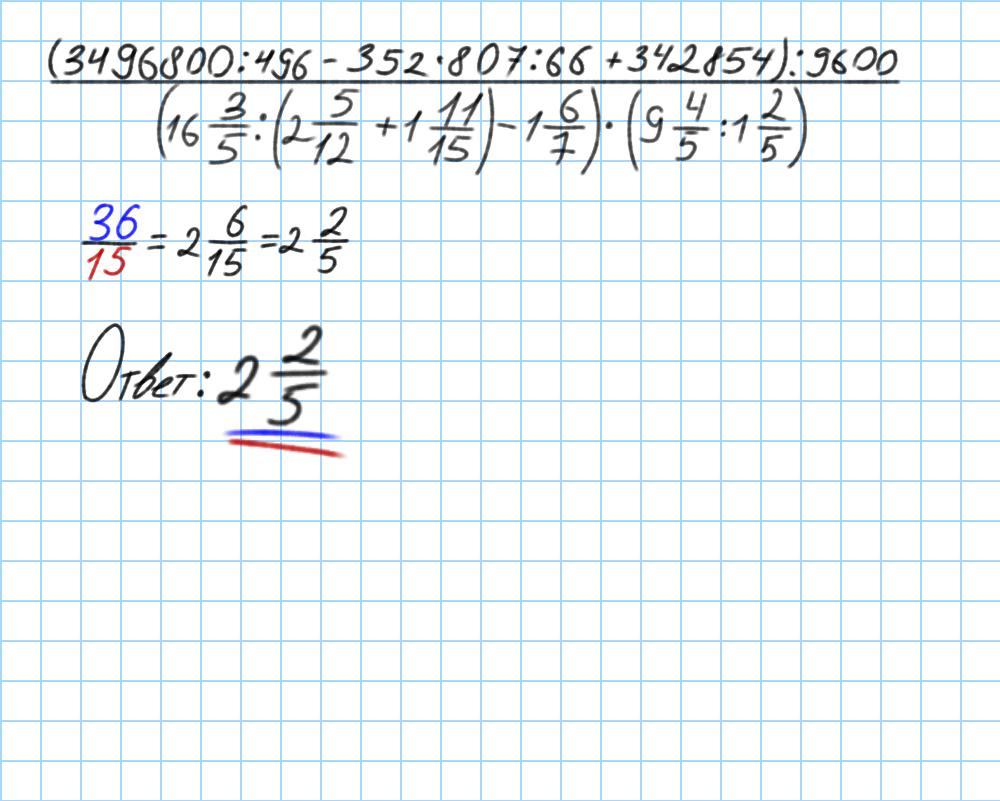 (3496800:496 - 352·807:66 + 342854):9600
(16 3/5 : (2 5/12 + 1 11/15) - 1 6/7) · (9 4/5 : 1 2/5)
36/15 = 2 6/15 = 2 2/5
Ответ: 2 2/5